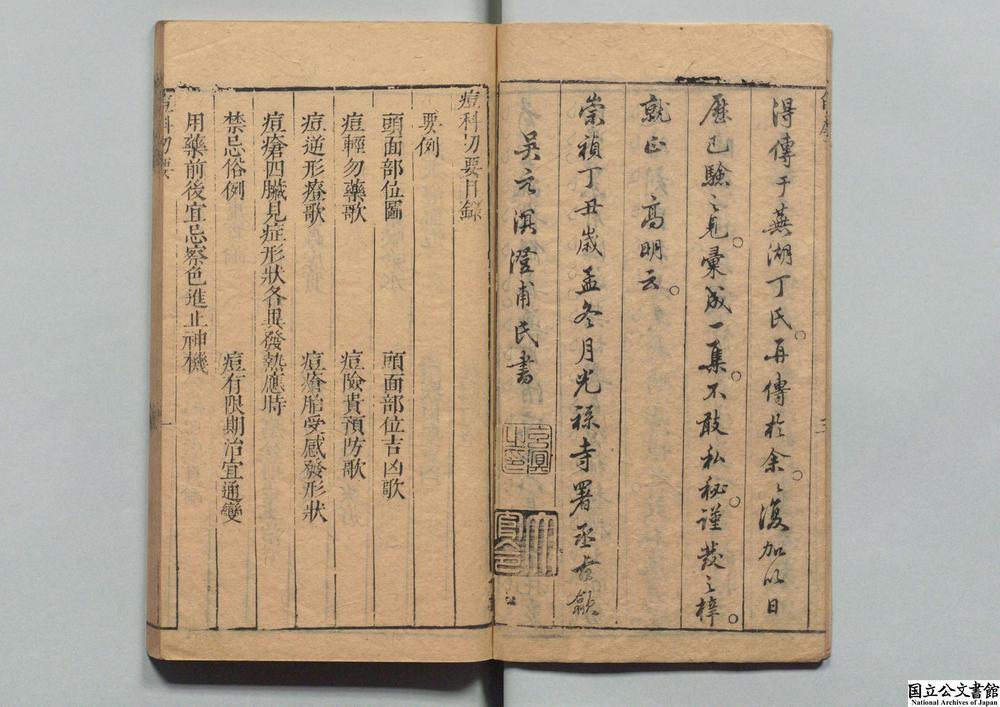 得傳于蕪湖丁氏。再傳於余。余復加以日
歷已驗之見。彙成一集。不敢私秘。謹發之梓。
就正 高明云。
崇禎丁丑歲孟冬月光祿寺署丞古歙
吳元溟澄甫氏書
痘科切要目錄
要例
頭面部位圖 頭面部位吉凶歌
痘輕勿藥歌 痘險貴預防歌
痘逆形療歌 痘瘡胎受感發形狀
痘瘡四臟見症形狀各異發熱應時
禁忌俗例 痘有限期治宜通變
用藥前後宜忌察色進止神機
痘科切要
一
国立公文書館
National Archives of Japan